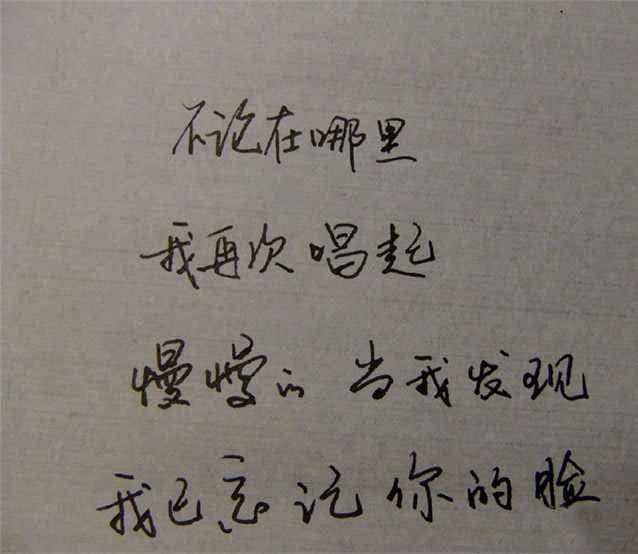 不论在哪里
我再次唱起
慢慢的 当我发现
我已忘记你的脸